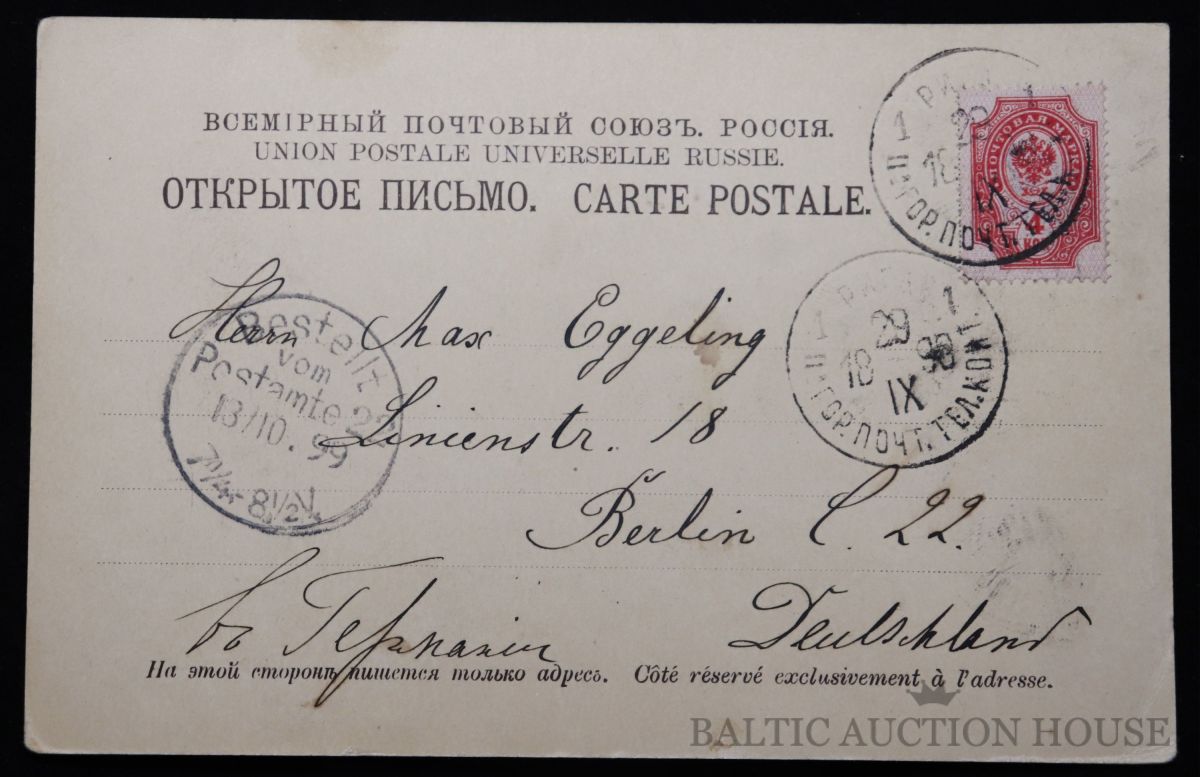 ВСЕМІРНЫЙ ПОЧТОВЫЙ СОЮЗЪ. РОССІЯ.
UNION POSTALE UNIVERSELLE RUSSIE.
ОТКРЫТОЕ ПИСЬМО. CARTE POSTALE.
ПОЧТОВАЯ МАРКА
4
1 РИГА 1
29
18
IX
ГОР. ПОЧТ. ТЕЛ. К
1 РИГА 1
29
18 99
IX
ГОР. ПОЧТ. ТЕЛ. КОНТ
Herrn Max Eggeling
Linienstr. 18
Berlin C. 22.
Deutschland
въ Германію
Bestellt
vom
Postamte 22
13/10. 99
7 1/4 - 8 1/2 V.
На этой сторонѣ пишется только адресъ. Côté réservé exclusivement à l'adresse.
BALTIC AUCTION HOUSE